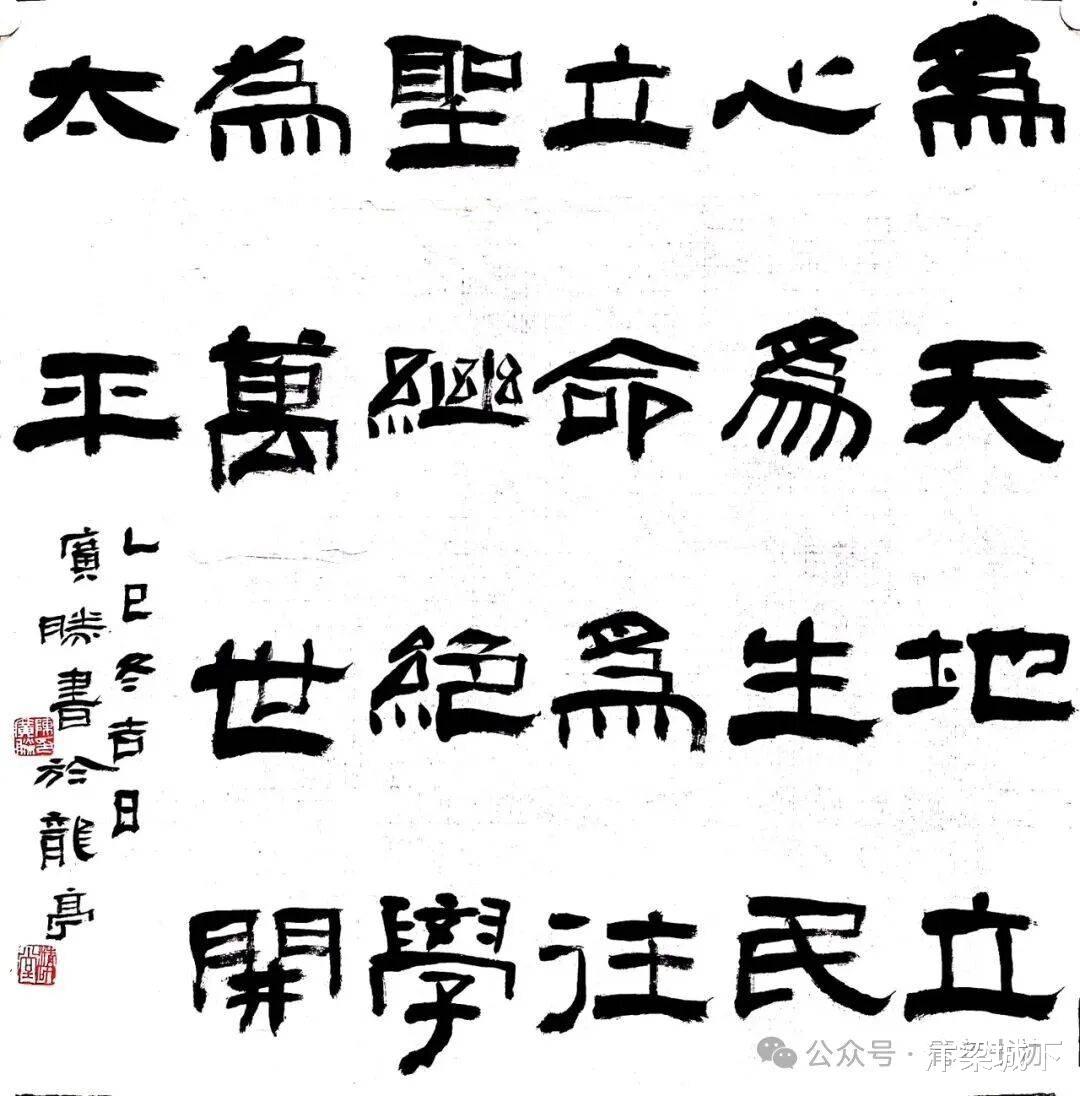 爲天地立
心爲生民
立命爲往
聖繼絕學
為萬世開
太平
乙巳冬吉日
廣勝書於龍亭
公众号 · 汴梁城下